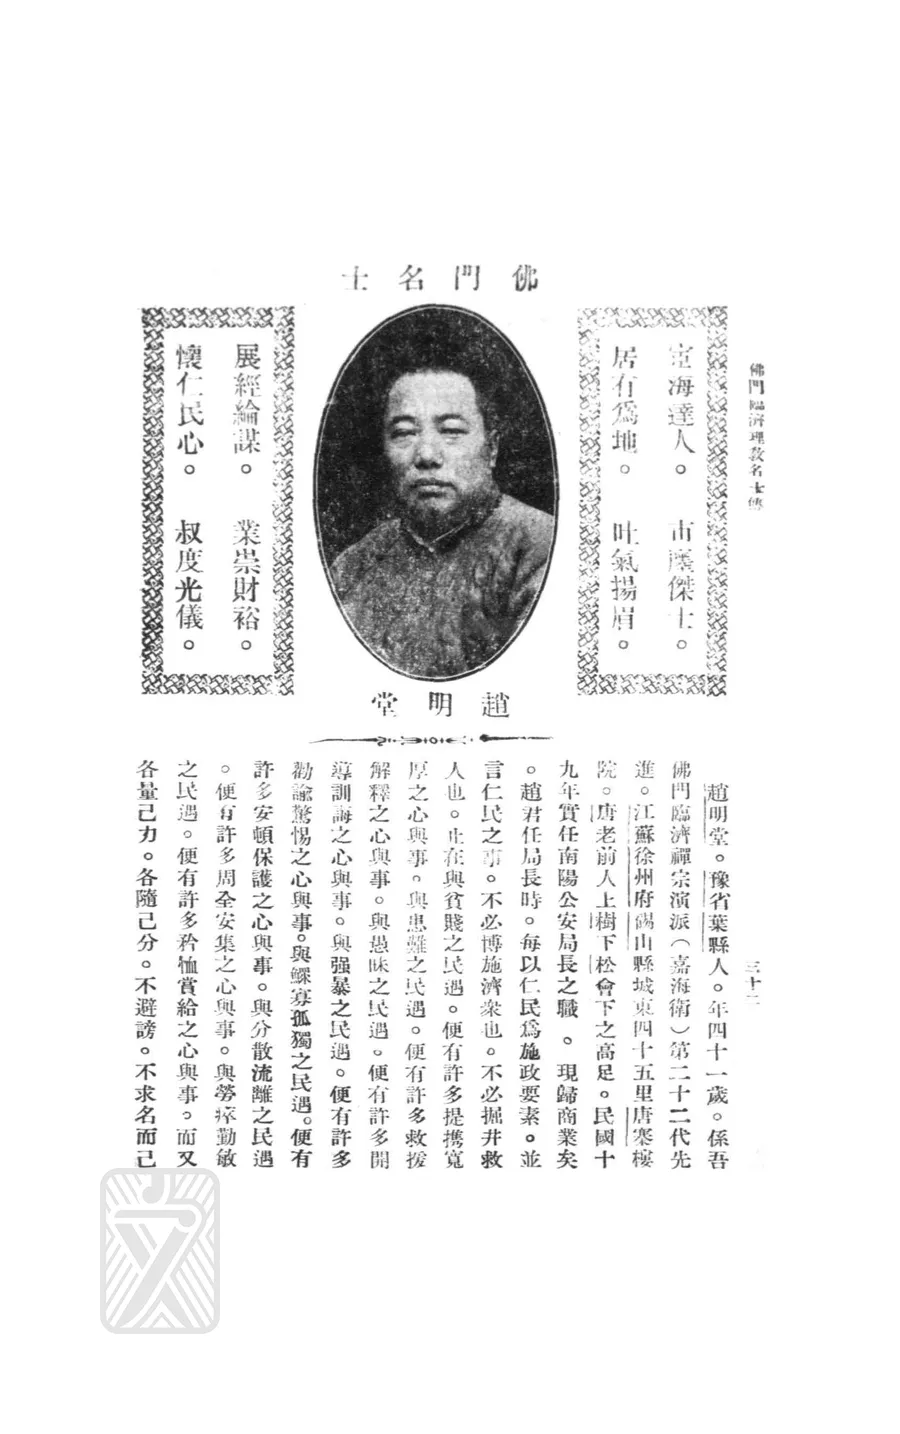 佛門臨濟理教名士傳
三十二
佛門名士
宦海達人。市隱傑士。
居有爲地。吐氣揚眉。
展經綸謀。業崇財裕。
懷仁民心。叔度光儀。
趙明堂
趙明堂。豫省葉縣人。年四十一歲。係吾
佛門臨濟禪宗演派(嘉海衛)第二十二代先
進。江蘇徐州府碭山縣城東四十五里唐寨樓
院。唐老前人上樹下松會下之高足。民國十
九年實任南陽公安局長之職。現歸商業矣
。趙君任局長時。每以仁民爲施政要素。並
言仁民之事。不必博施濟衆也。不必掘井救
人也。止在與貧賤之民遇。便有許多提携寬
厚之心與事。與患難之民遇。便有許多救援
解釋之心與事。與愚昧之民遇。便有許多開
導訓誨之心與事。與强暴之民遇。便有許多
勸諭驚惕之心與事。與鰥寡孤獨之民遇。便有
許多安頓保護之心與事。與分散流離之民遇
。便有許多周全安集之心與事。與勞瘁勤敏
之民遇。便有許多矜恤賞給之心與事。而又
各量己力。各隨己分。不避謗。不求名而己